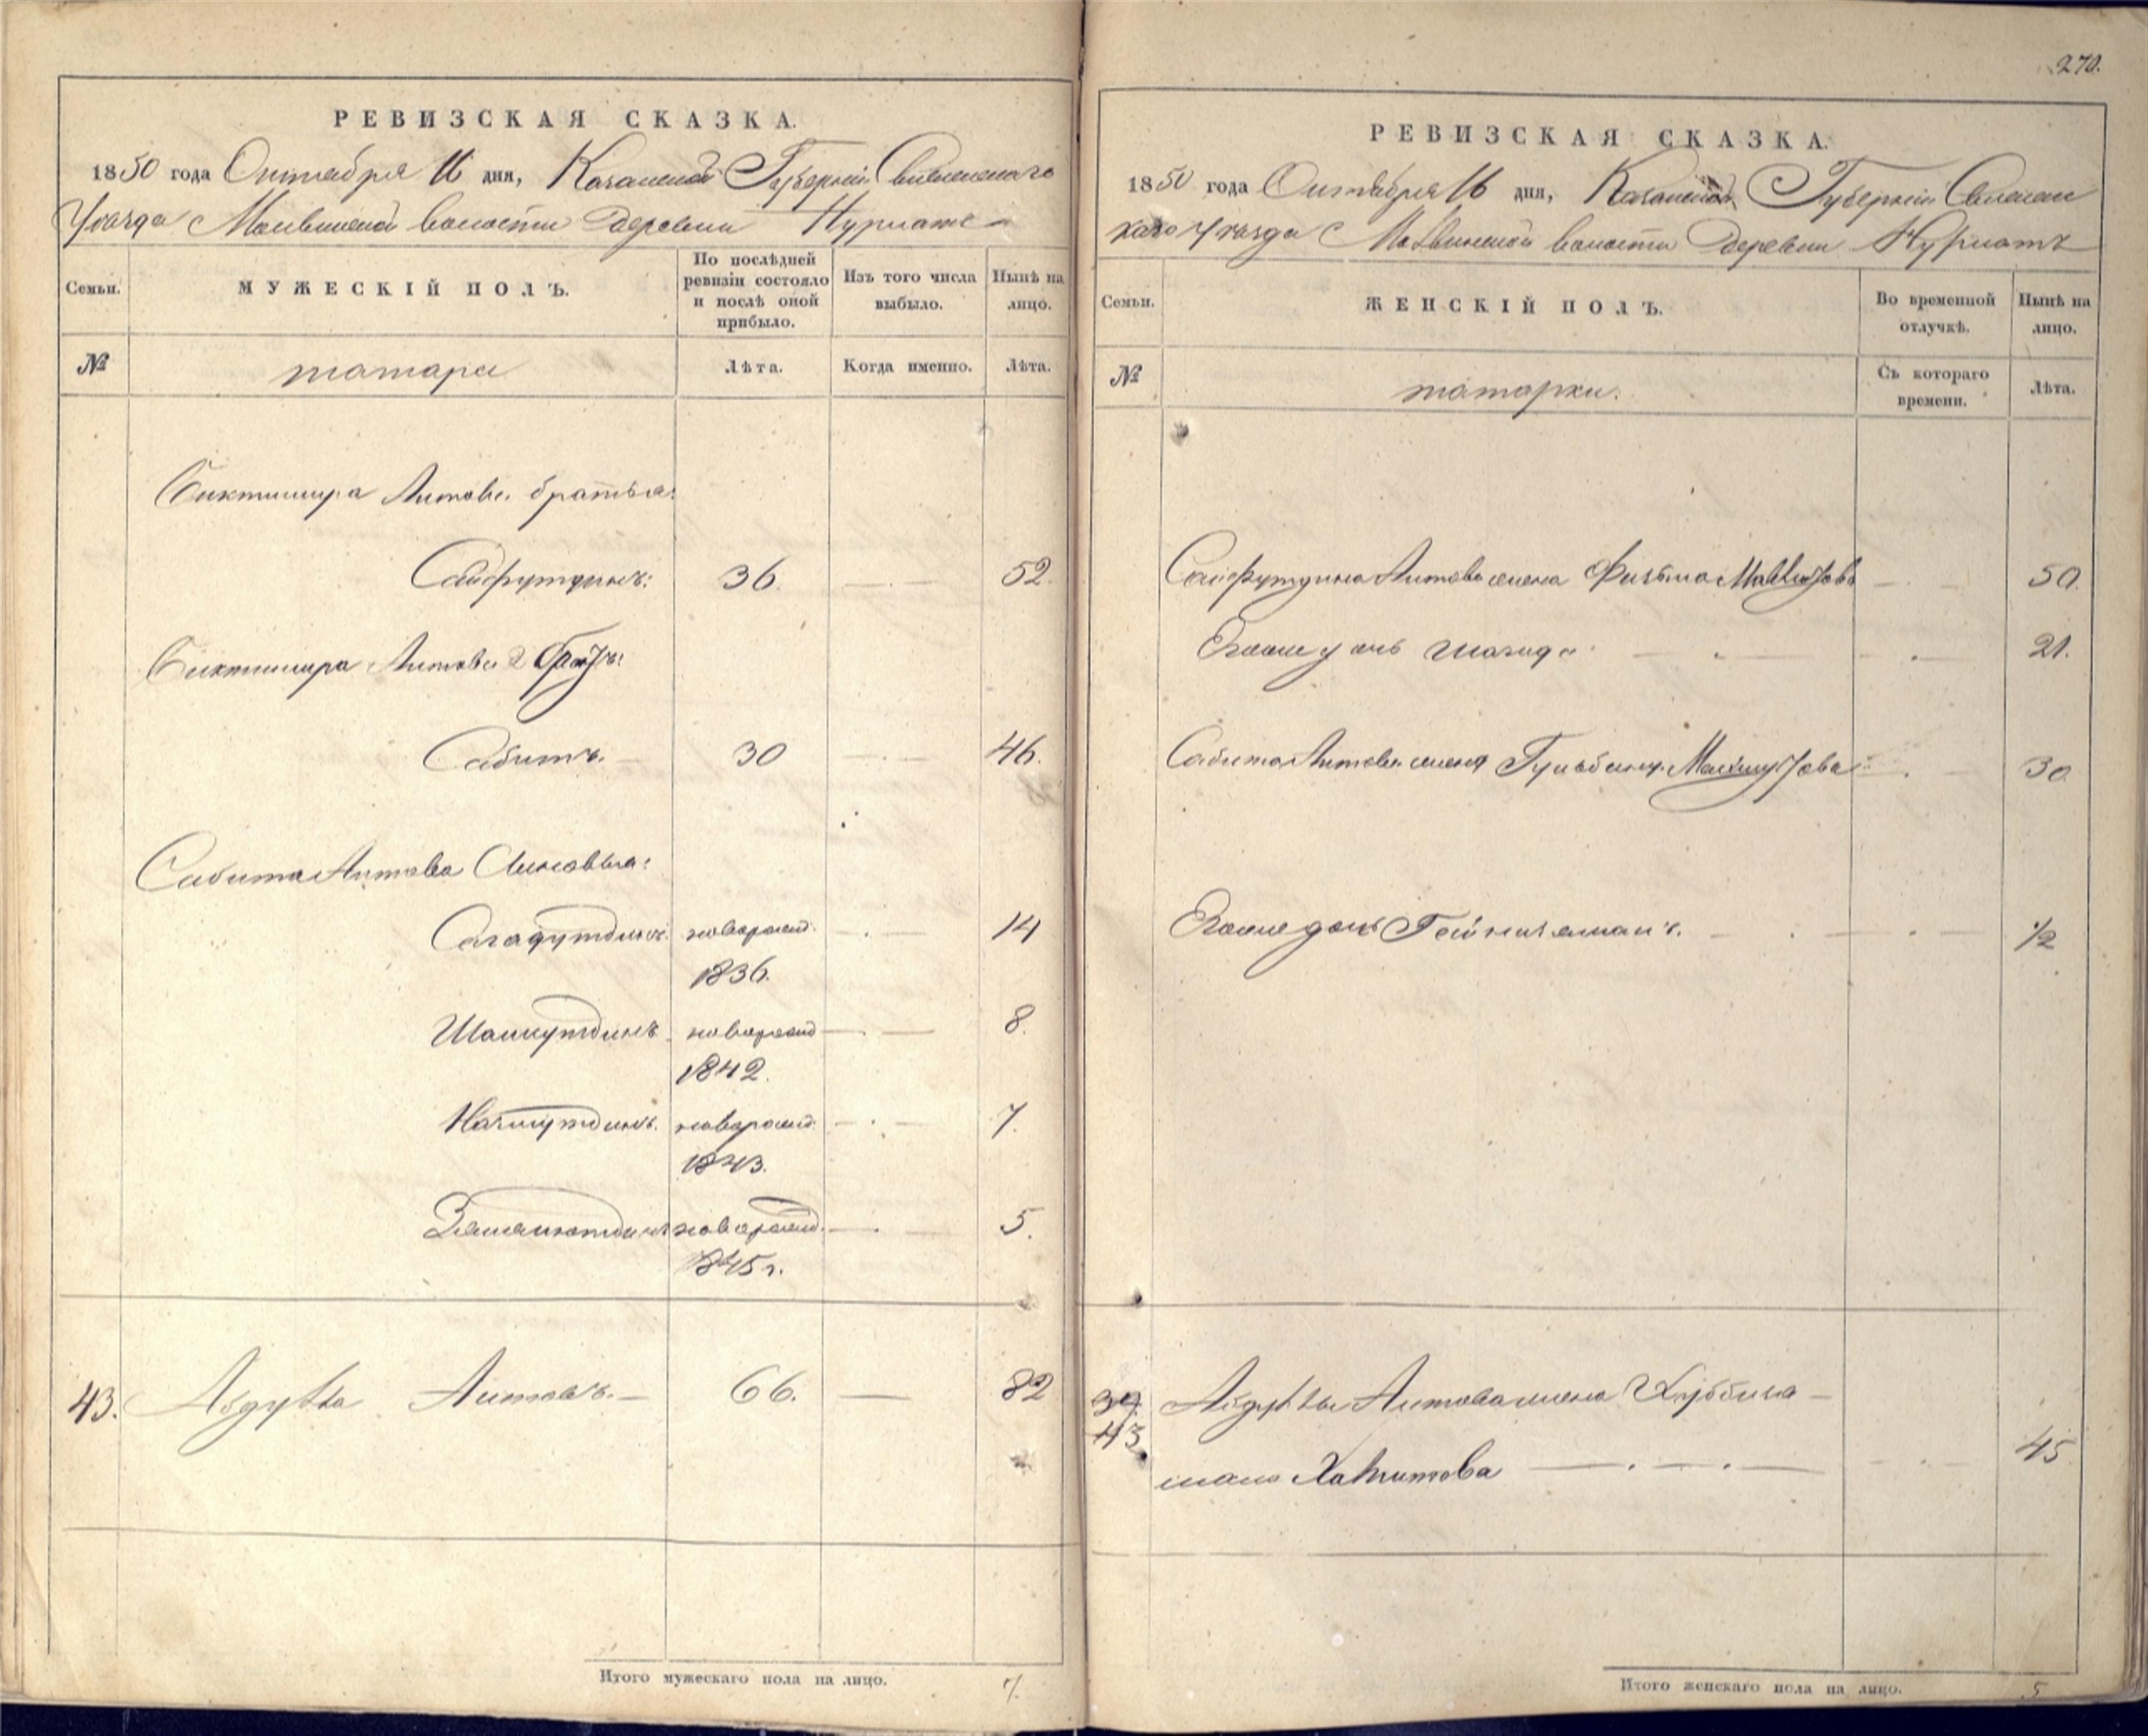 270.
РЕВИЗСКАЯ СКАЗКА.
1850 года Октября 16 дня, Казанской Губерніи Свіяжскаго
Уѣзда волости Деревни Нурлатъ
Семьи.
МУЖЕСКІЙ ПОЛЪ.
По послѣдней ревизіи состояло и послѣ оной прибыло.
Изъ того числа выбыло.
Нынѣ на лицо.
№
татара
Лѣта.
Когда именно.
Лѣта.
Биктимира Аитова братья:
Сайфутдинъ: 36. 52.
Биктимира Аитова 2 братъ:
Сабитъ. 30 46.
Сабита Аитова Сыновья:
Сагадутдинъ. новорожд. 14
1836.
Шамгутдинъ новорожд 8.
1842.
Назмутдинъ. новорожд. 7.
1843.
новорожд. 5.
1845 г.
43. Абдулла Аитовъ. 66. 82
Итого мужескаго пола на лицо. 7.
РЕВИЗСКАЯ СКАЗКА.
1850 года Октября 16 дня, Казанской Губерніи Свіяж
скаго Уѣзда волости Деревни Нурлатъ
Семьи.
ЖЕНСКІЙ ПОЛЪ.
Во временной отлучкѣ.
Нынѣ на лицо.
№
татарки.
Съ котораго времени.
Лѣта.
Сайфутдина Аитова жена 50.
Его дочь 21.
Сабита Аитова жена 30
Его дочь 1/2
39.
43
Абдуллы Аитова жена Хуббиза
Хакимова 45
Итого женскаго пола на лицо. 5